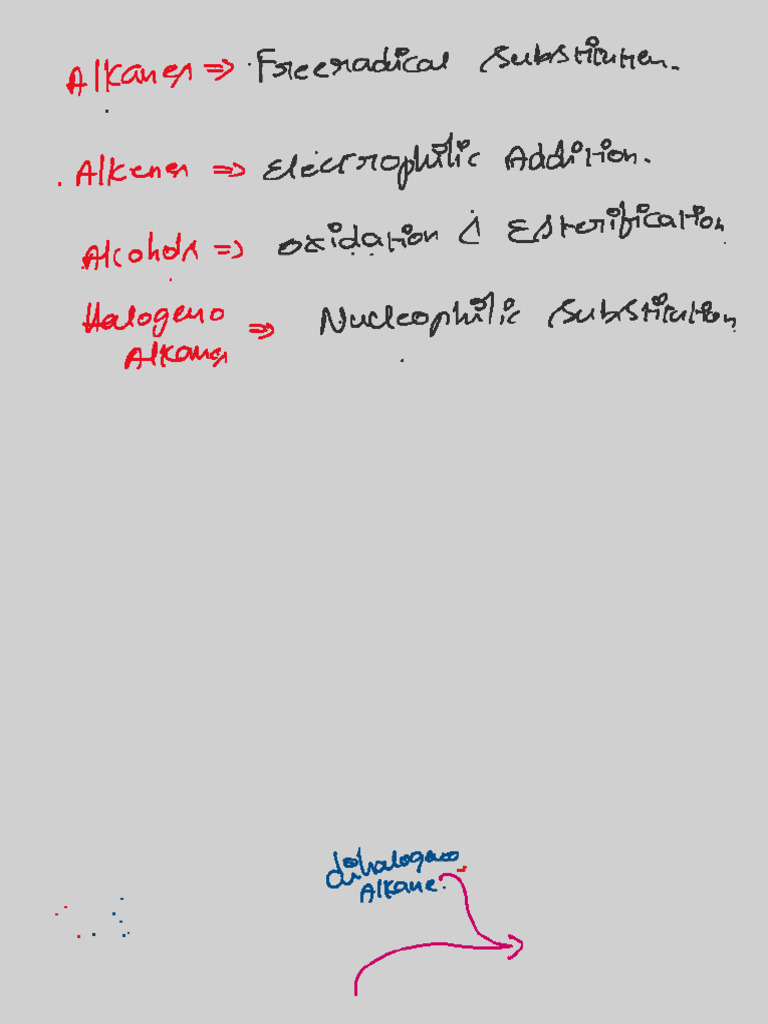 Alkanes => Freeradical Substitution.
Alkenes => Electrophilic Addition.
Alcohols => Oxidation & Esterification
Halogeno
Alkanes => Nucleophilic Substitution
dihalogeno
Alkane.